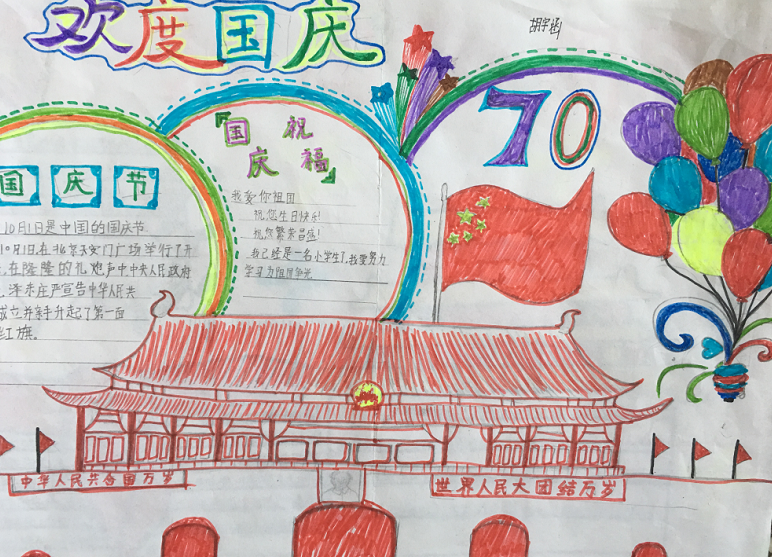 欢度国庆
胡宇涵
70
国庆祝福
国庆节
我爱你祖国
祝您生日快乐!
祝您繁荣昌盛!
我已经是一名小学生了,我要努力
学习为祖国争光
10月1日是中国的国庆节
10月1日,在北京天安门广场举行了开
在隆隆的礼炮声中中央人民政府
庄严宣告中华人民共
成立并亲手升起了第一面
红旗。
中华人民共合国万岁
世界人民大团结万岁